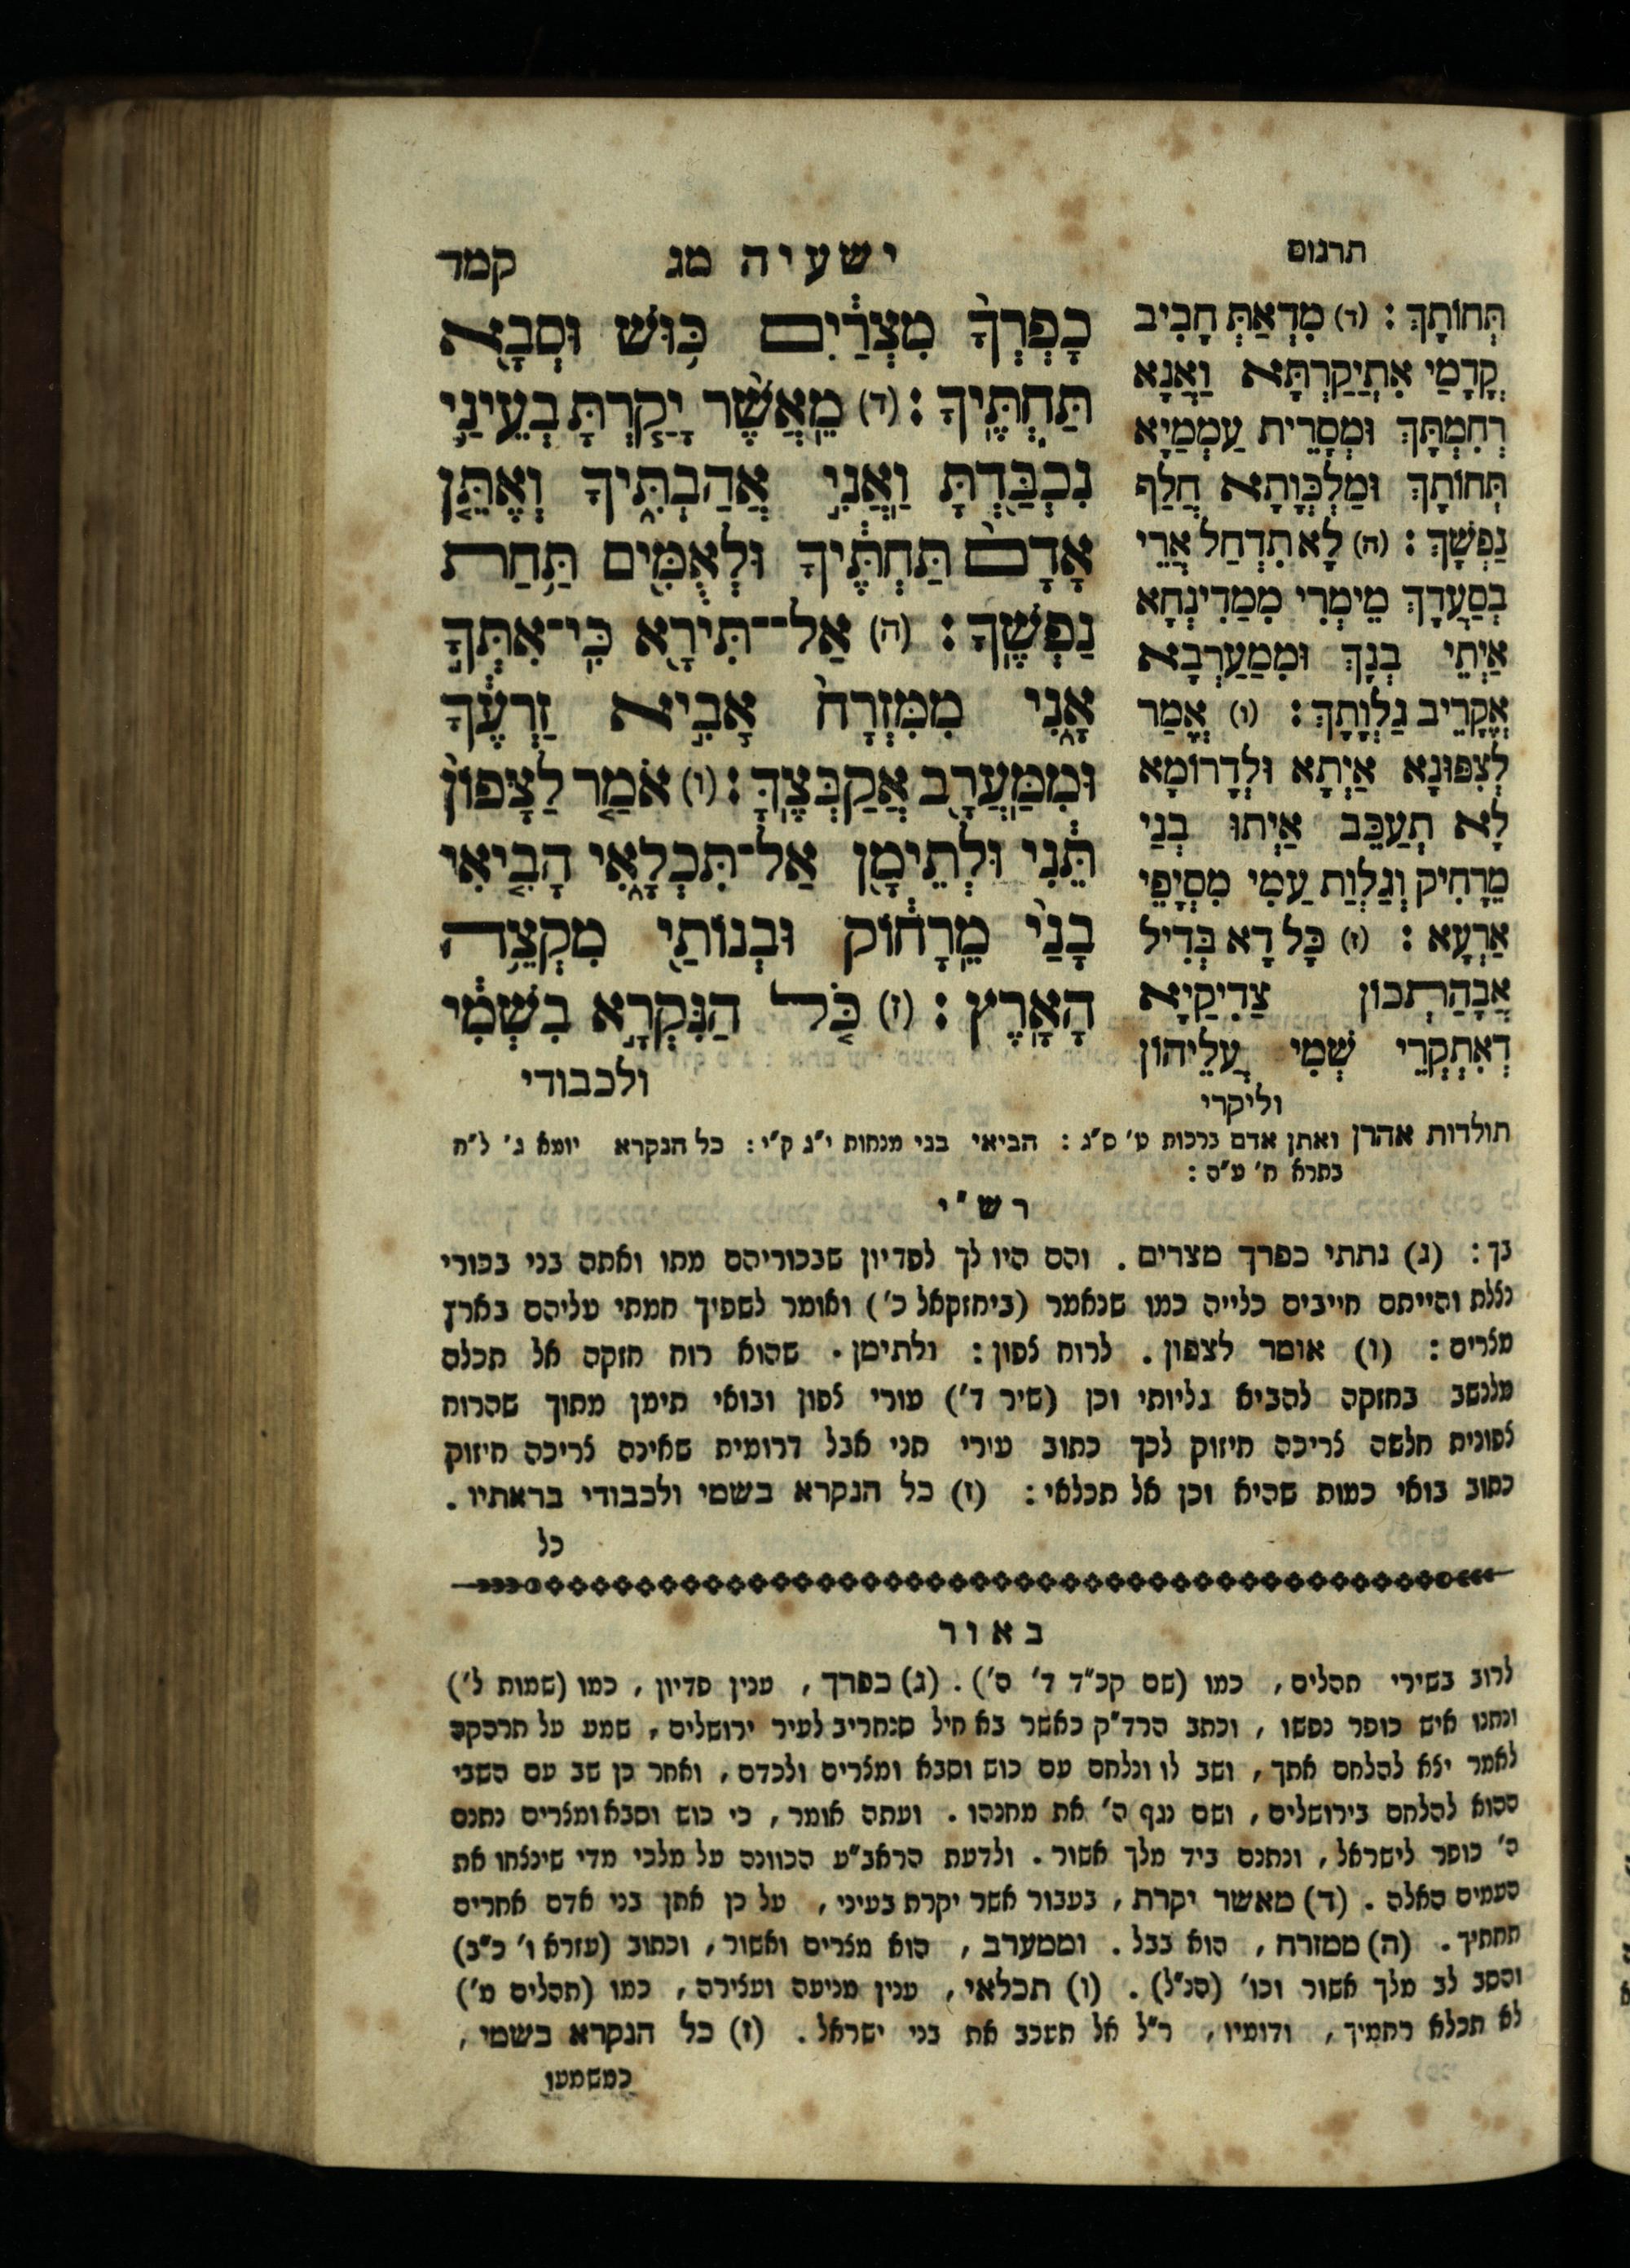 תרגום
ישעיה מג
קמד
תְּחוֹתָךְ : (ד) מִדְאַתְּ חָבִיב
קֳדָמַי אִתְיַקַרְתָּא וַאֲנָא
רְחִמְתָּךְ וּמְסָרֵית עַמְמַיָא
תְּחוֹתָךְ וּמַלְכְּוָתָא חֲלַף
נַפְשָׁךְ : (ה) לָא תִדְחַל אֲרֵי
בְסַעֲדָךְ מֵימְרִי מִמַדִינְחָא
אַיְתֵי בְנָךְ וּמִמַעַרְבָא
אֱקָרֵיב גַלְוָתָךְ : (ו) אֱמַר
לְצִפּוּנָא אַיְתָא וּלְדָרוֹמָא
לָא תְעַכֵּב אַיְתוּ בְנַי
מֵרָחִיק וְגַלְוַת עַמִי מִסְיָפֵי
אַרְעָא : (ז) כָּל דָא בְּדִיל
אֲבָהַתְכוֹן צַדִיקַיָא
דְאִתְקְרֵי שְׁמִי עֲלֵיהוֹן
וליקרי
כָפְרְךָ֙ מִצְרַ֔יִם כּ֥וּשׁ וּסְבָ֖א
תַּחְתֶּֽיךָ : (ד) מֵאֲשֶׁ֨ר יָקַ֧רְתָּ בְעֵינַ֛י
נִכְבַּ֖דְתָּ וַאֲנִ֣י אֲהַבְתִּ֑יךָ וְאֶתֵּ֤ן
אָדָם֙ תַּחְתֶּ֔יךָ וּלְאֻמִּ֖ים תַּ֥חַת
נַפְשֶֽׁךָ : (ה) אַל־תִּירָ֖א כִּ֣י־אִתְּךָ֣
אָ֑נִי מִמִּזְרָח֙ אָבִ֣יא זַרְעֶ֔ךָ
וּמִמַּעֲרָ֖ב אֲקַבְּצֶֽךָּ : (ו) אֹמַ֤ר לַצָּפוֹן֙
תֵּ֔נִי וּלְתֵימָ֖ן אַל־תִּכְלָ֑אִי הָבִ֤יאִי
בָנַי֙ מֵרָח֔וֹק וּבְנוֹתַ֖י מִקְצֵ֥ה
הָאָֽרֶץ : (ז) כֹּ֚ל הַנִּקְרָ֣א בִשְׁמִ֔י
ולכבודי
תולדות אהרן ואתן אדם ברכות ט׳ ס״ג : הביאי בני מנחות י״ג ק״י : כל הנקרא יומא ג׳ ל״ח
בתרא ח׳ ע״ה :
רש״י
בך : (ג) נתתי כפרך מצרים . והם היו לך לפדיון שבכוריהם מתו ואתה בני בכורי
נצלת והייתם חייבים כלייה כמו שנאמר (ביחזקאל כ׳) ואומר לשפוך חמתי עליהם בארץ
מצרים : (ו) אומר לצפון . לרוח צפון : ולתימן . שהוא רוח חזקה אל תכלם
מלנשב בחזקה להביא גליותי וכן (שיר ד׳) עורי צפון ובואי תימן מתוך שהרוח
צפונית חלשה צריכה חיזוק לכך כתוב עורי תני אבל דרומית שאינה צריכה חיזוק
כתוב בואי כמות שהיא וכן אל תכלאי : (ז) כל הנקרא בשמי ולכבודי בראתיו .
כל
באור
לרוב בשירי תהלים , כמו (שם קכ״ד ד׳ ה׳) . (ג) כפרך , ענין פדיון , כמו (שמות ל׳)
ונתנו איש כופר נפשו , וכתב הרד״ק כאשר בא חיל סנחריב לעיר ירושלים , שמע על תרהקה
לאמר יצא להלחם אתך , ושב לו ונלחם עם כוש וסבא ומצרים ולכדם , ואחר כן שב עם השבי
ההוא להלחם בירושלים , ושם נגף ה׳ את מחנהו . ועתה אומר , כי כוש וסבא ומצרים נתנם
ה׳ כופר לישראל , ונתנם ביד מלך אשור . ולדעת הראב״ע הכוונה על מלכי מדי שינצחו את
העמים האלה . (ד) מאשר יקרת , בעבור אשר יקרת בעיני , על כן אתן בני אדם אחרים
תחתיך . (ה) ממזרח , הוא בבל . וממערב , הוא מצרים ואשור , וכתוב (עזרא ו׳ כ״ב)
והסב לב מלך אשור וכו׳ (הנ״ל) . (ו) תכלאי , ענין מניעה ועצירה , כמו (תהלים מ׳)
לא תכלא רחמיך , ודומיו , ר״ל אל תעכב את בני ישראל . (ז) כל הנקרא בשמי ,
כמשמעו